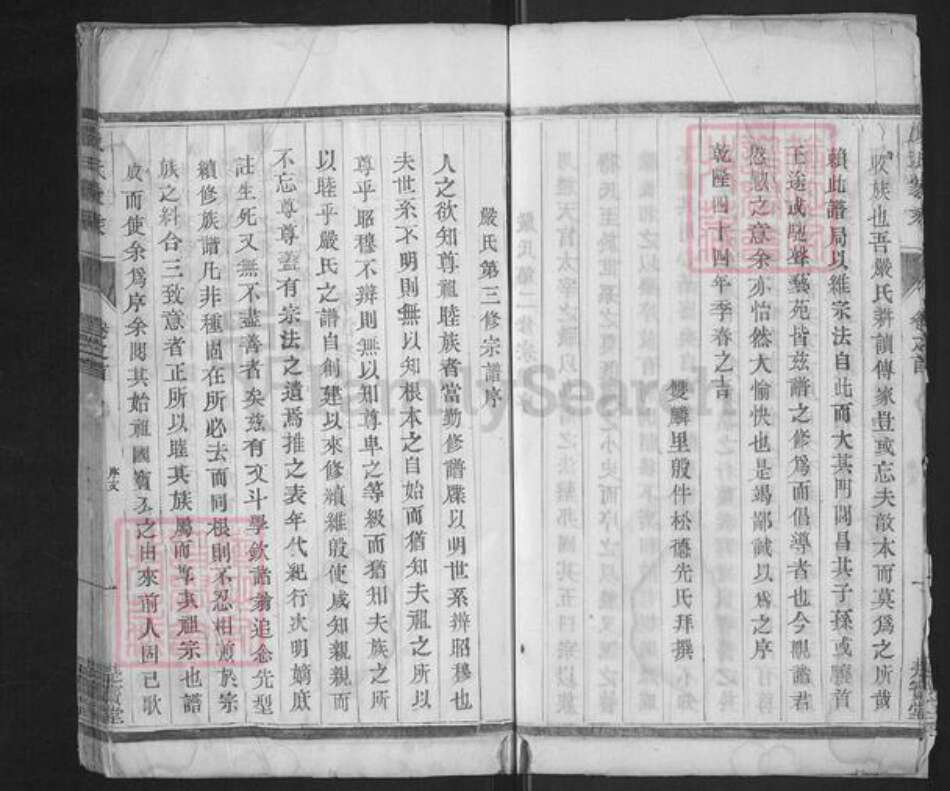 收族也吾嚴氏耕讀傳家豈或忘夫敦本而莫爲之所哉
賴此譜局以維宗法自此而大其門閭昌其子孫或驤首
王途或馳聲藝苑皆茲譜之修爲而倡導者也今覩諸君
慇懃之意余亦怡然大愉快也是竭鄙誠以爲之序
乾隆四十四年季春之吉
雙麟里殷件松德先氏拜撰
嚴氏第三修宗譜序
人之欲知尊祖睦族者當勤修譜牒以明世系辨昭穆也
夫世系不明則無以知根本之自始而猶知夫祖之所以
尊乎昭穆不辨則無以知尊卑之等級而猶知夫族之所
以睦乎嚴氏之譜自創建以來修續維殷使咸知親親而
不忘尊尊蓋有宗法之遺焉推之表年代紀行次明嫡庶
註生死又無不盡善者矣茲有文斗學欽諸翁追念先型
續修族譜凡非種固在所必去而同根則不忍相煎於宗
族之糾合三致意者正所以睦其族屬而尊其祖宗也譜
成而使余爲序余閱其始祖國賓公之由來前人固已歌
卷之首
序
FamilySearch